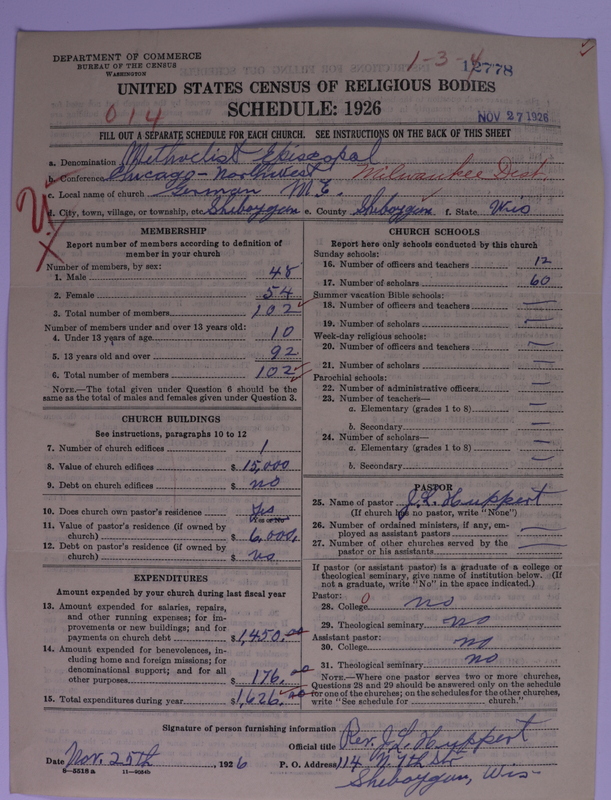 DEPARTMENT OF COMMERCE
BUREAU OF THE CENSUS
WASHINGTON
1-3-4
12778
UNITED STATES CENSUS OF RELIGIOUS BODIES
SCHEDULE: 1926
014
NOV 27 1926
FILL OUT A SEPARATE SCHEDULE FOR EACH CHURCH. SEE INSTRUCTIONS ON THE BACK OF THIS SHEET
a. Denomination Methodist Episcopal
b. Conference Chicago-Northwest Milwaukee Dist.
c. Local name of church German M.E.
d. City, town, village, or township, etc. Sheboygan e. County Sheboygan f. State Wis
MEMBERSHIP
Report number of members according to definition of member in your church
Number of members, by sex:
1. Male 48
2. Female 54
3. Total number of members 102
Number of members under and over 13 years old:
4. Under 13 years of age 10
5. 13 years old and over 92
6. Total number of members 102
NOTE.—The total given under Question 6 should be the same as the total of males and females given under Question 3.
CHURCH BUILDINGS
See instructions, paragraphs 10 to 12
7. Number of church edifices 1
8. Value of church edifices $ 15,000
9. Debt on church edifices $ no
10. Does church own pastor's residence Yes
Yes or No
11. Value of pastor's residence (if owned by church) $ 6,000.
12. Debt on pastor's residence (if owned by church) $ no
EXPENDITURES
Amount expended by your church during last fiscal year
13. Amount expended for salaries, repairs, and other running expenses; for improvements or new buildings; and for payments on church debt $ 1,450.00
14. Amount expended for benevolences, including home and foreign missions; for denominational support; and for all other purposes $ 176.00
15. Total expenditures during year $ 1,626.00
CHURCH SCHOOLS
Report here only schools conducted by this church
Sunday schools:
16. Number of officers and teachers 12
17. Number of scholars 60
Summer vacation Bible schools:
18. Number of officers and teachers —
19. Number of scholars —
Week-day religious schools:
20. Number of officers and teachers —
21. Number of scholars —
Parochial schools:
22. Number of administrative officers —
23. Number of teachers—
a. Elementary (grades 1 to 8) —
b. Secondary —
24. Number of scholars—
a. Elementary (grades 1 to 8) —
b. Secondary —
PASTOR
25. Name of pastor J. L. Huppert
(If church has no pastor, write "None")
26. Number of ordained ministers, if any, employed as assistant pastors —
27. Number of other churches served by the pastor or his assistants —
If pastor (or assistant pastor) is a graduate of a college or theological seminary, give name of institution below. (If not a graduate, write "No" in the space indicated.)
Pastor:
28. College 0 no
29. Theological seminary no
Assistant pastor:
30. College no
31. Theological seminary no
NOTE.—Where one pastor serves two or more churches, Questions 28 and 29 should be answered only on the schedule for one of the churches; on the schedules for the other churches, write "See schedule for church."
Signature of person furnishing information
Official title Rev. J. L. Huppert
Date Nov. 25th, 1926 P. O. Address 1114 N. 7th Str
Sheboygan, Wis
8-5518 a